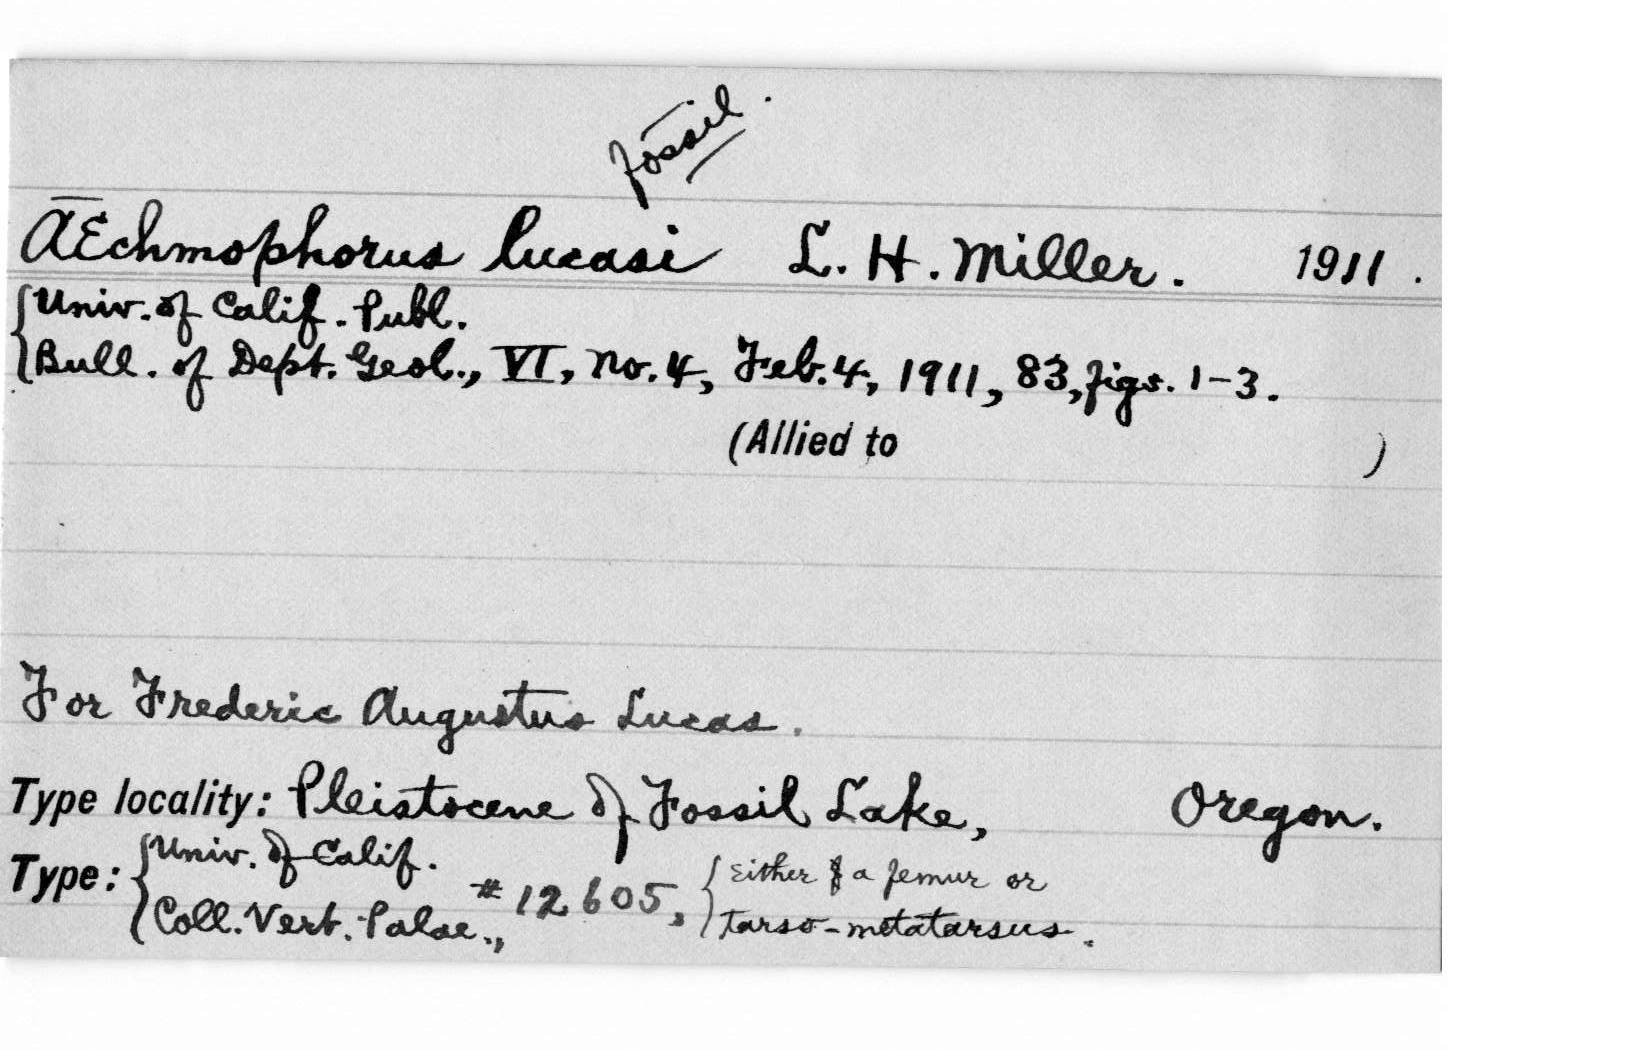 fossil.
Æchmophorus lucasi L. H. Miller. 1911.
Univ. of Calif. Publ.
Bull. of Dept. Geol., VI, No. 4, Feb. 4, 1911, 83, figs. 1-3.
(Allied to )
For Frederic Augustus Lucas.
Type locality: Pleistocene of Fossil Lake, Oregon.
Type: Univ. of Calif.
Coll. Vert. Palae., # 12605, Either a femur or
tarso-metatarsus.